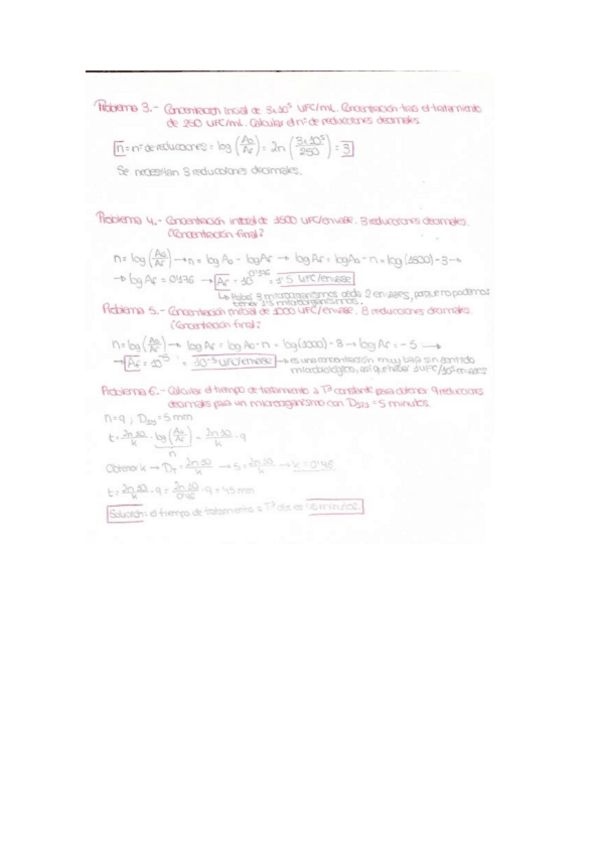 Problema 3.- Concentración inicial de 3x10⁵ UFC/mL. Concentración tras el tratamiento
de 250 UFC/mL. Calcular el nº de reducciones decimales
n = nº de reducciones = log (A₀/A_F) = ln (3x10⁵/250) = 3
Se necesitan 3 reducciones decimales.
Problema 4.- Concentración inicial de 1500 UFC/envase. 3 reducciones decimales.
¿Concentración final?
n = log (A₀/A_F) → n = log A₀ - log A_F → log A_F = log A₀ - n = log (1500) - 3 →
→ log A_F = 0'176 → A_F = 10^0'176 = 1'5 UFC/envase
↳ Habrá 3 microorganismos cada 2 envases, porque no podemos
tener 1'5 microorganismos.
Problema 5.- Concentración inicial de 1000 UFC/envase. 8 reducciones decimales.
¿Concentración final?
n = log (A₀/A_F) → log A_F = log A₀ - n = log (1000) - 8 → log A_F = -5 →
→ A_F = 10⁻⁵ = 10⁻⁵ UFC/envase → es una concentración muy baja sin sentido
microbiológico, así que habrá 1 UFC/10⁵ envases
Problema 6.- Calcular el tiempo de tratamiento a Tª constante para obtener 9 reducciones
decimales para un microorganismo con = 5 minutos.
n = 9 ; = 5 min
t = ln 10/k · log (A₀/A_F) = ln 10/k · 9
n
Obtener k → D_T = ln 10/k → 5 = ln 10/k → k = 0'46
t = ln 10/k · 9 = ln 10/0'46 · 9 = 45 min
Solución: el tiempo de tratamiento a Tª cte es minutos.